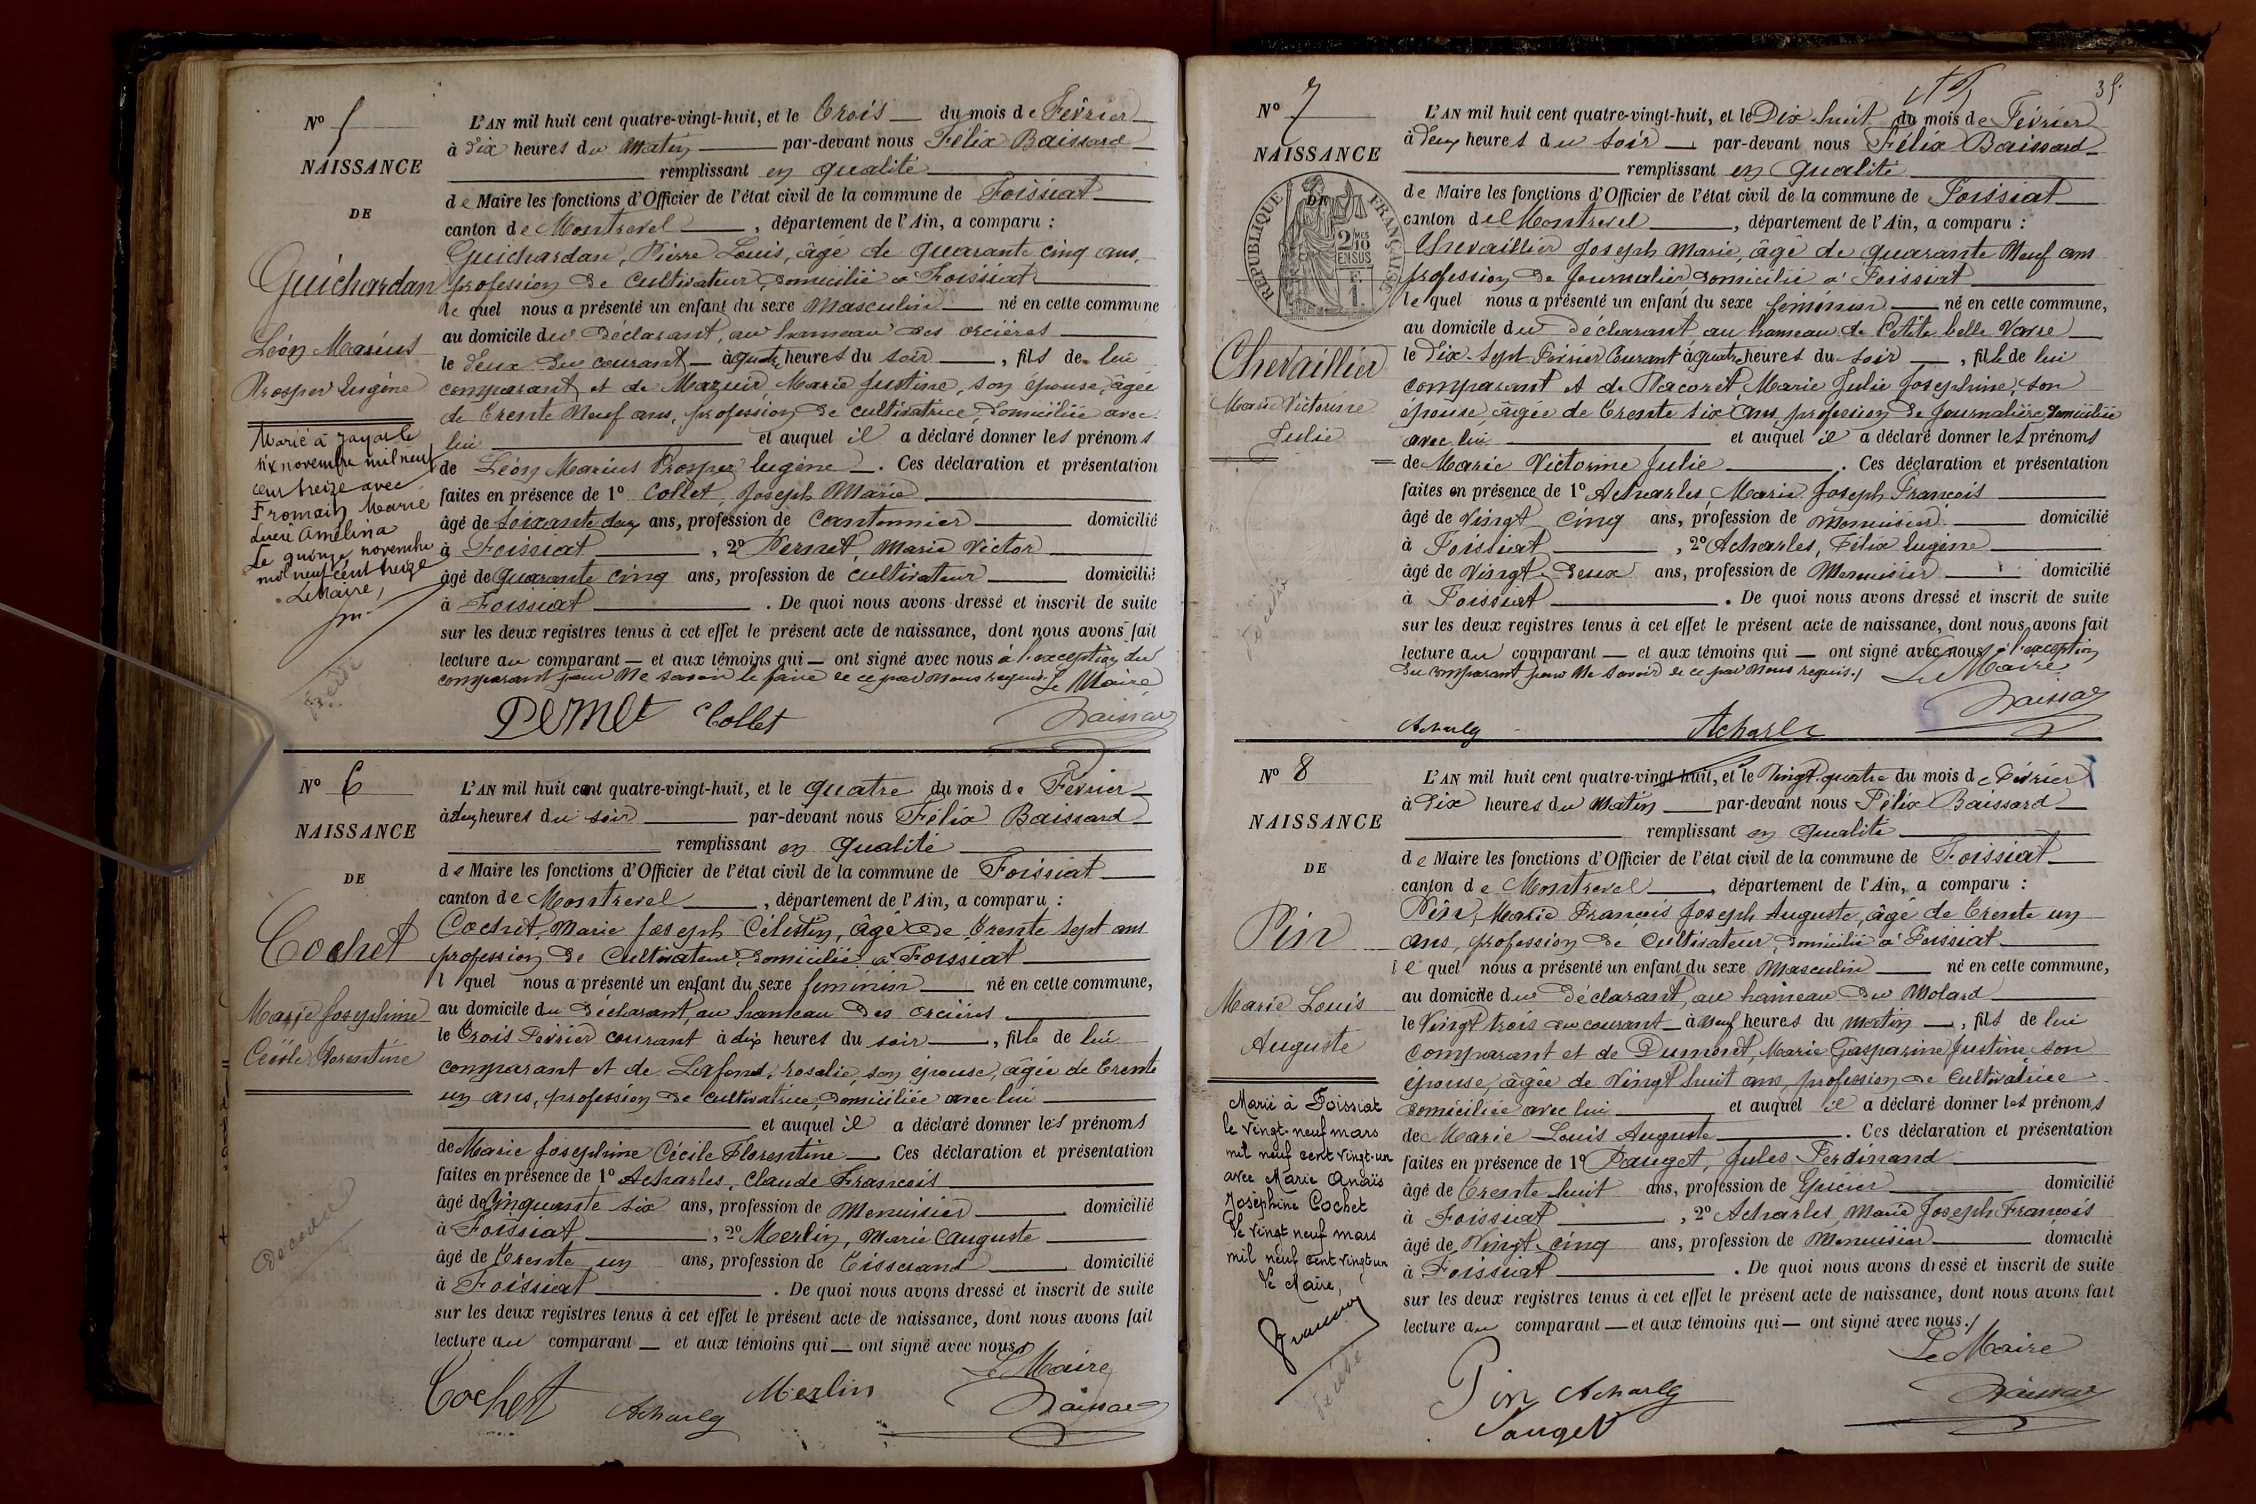 Nº 5
NAISSANCE
DE
Guichardan
Léon Marius
Prosper Eugène
Marié à Jayat le
six novembre mil neuf
cent treize avec
Fromain Marie
Amélina
Le quinze novembre
mil neuf cent treize
Le Maire,
L'AN mil huit cent quatre-vingt-huit, et le Trois du mois de Février
à dix heures du matin par-devant nous Félix Baissard
remplissant en qualité
de Maire les fonctions d'Officier de l'état civil de la commune de Foissiat
canton de Montrevel, département de l'Ain, a comparu :
Guichardan, Pierre Louis, âgé de quarante cinq ans,
profession de cultivateur, domicilié à Foissiat
le quel nous a présenté un enfant du sexe masculin né en cette commune
au domicile du déclarant, au hameau des orcières
le deux du courant à quatre heures du soir, fils de lui
comparant et de Mazuir, Marie Justine, son épouse, âgée
de trente neuf ans, profession de cultivatrice, domiciliée avec
lui et auquel il a déclaré donner les prénoms
de Léon Marius Prosper Eugène. Ces déclaration et présentation
faites en présence de 1º Collet, Joseph Marie
âgé de soixante deux ans, profession de Cantonnier domicilié
à Foissiat, 2º Pernet, Marie Victor
âgé de quarante cinq ans, profession de cultivateur domicilié
à Foissiat. De quoi nous avons dressé et inscrit de suite
sur les deux registres tenus à cet effet le présent acte de naissance, dont nous avons fait
lecture au comparant et aux témoins qui ont signé avec nous à l'exception du
comparant pour ne savoir le faire de ce par nous requis. Le Maire
Pernet Collet Baissard
Nº 6
NAISSANCE
DE
Cochet
Marie Joséphine
Cécile Florentine
L'AN mil huit cent quatre-vingt-huit, et le quatre du mois de Février
à deux heures du soir par-devant nous Félix Baissard
remplissant en qualité
de Maire les fonctions d'Officier de l'état civil de la commune de Foissiat
canton de Montrevel, département de l'Ain, a comparu :
Cochet, Marie Joseph Célestin, âgé de trente sept ans
profession de Cultivateur, domicilié à Foissiat
l quel nous a présenté un enfant du sexe féminin né en cette commune,
au domicile du déclarant, au hameau des orcières
le Trois Février courant à dix heures du soir, fille de lui
comparant et de Lafond, rosalie, son épouse, âgée de trente
un ans, profession de cultivatrice, domiciliée avec lui
et auquel il a déclaré donner les prénoms
de Marie Joséphine Cécile Florentine. Ces déclaration et présentation
faites en présence de 1º Acharles, Claude François
âgé de Cinquante six ans, profession de Menuisier domicilié
à Foissiat, 2º Merlin, Marie Auguste
âgé de trente un ans, profession de Tisserand domicilié
à Foissiat. De quoi nous avons dressé et inscrit de suite
sur les deux registres tenus à cet effet le présent acte de naissance, dont nous avons fait
lecture au comparant et aux témoins qui ont signé avec nous
Le Maire
Cochet Acharles Merlin Baissard
35.
Nº 7
NAISSANCE
DE
RÉPUBLIQUE FRANÇAISE
2/10 MES
EN SUS
F. 1.
Chevaillier
Marie Victorine
Julie
L'AN mil huit cent quatre-vingt-huit, et le Dix huit du mois de Février
à deux heures du soir par-devant nous Félix Baissard
remplissant en qualité
de Maire les fonctions d'Officier de l'état civil de la commune de Foissiat
canton de Montrevel, département de l'Ain, a comparu :
Chevaillier Joseph Marie, âgé de quarante Neuf ans
profession de Journalier domicilié à Foissiat
le quel nous a présenté un enfant du sexe féminin né en cette commune,
au domicile du déclarant au hameau de Petite belle Vavre
le Dix-sept Février Courant à quatre heures du soir, fille de lui
comparant et de Placoret, Marie Julie Joséphine, son
épouse, âgée de trente six ans, profession de Journalière domiciliée
avec lui et auquel il a déclaré donner les prénoms
de Marie Victorine Julie. Ces déclaration et présentation
faites en présence de 1º Acharles Marie Joseph François
âgé de Vingt cinq ans, profession de Menuisier domicilié
à Foissiat, 2º Acharles, Félix Eugène
âgé de Vingt deux ans, profession de Menuisier domicilié
à Foissiat. De quoi nous avons dressé et inscrit de suite
sur les deux registres tenus à cet effet le présent acte de naissance, dont nous avons fait
lecture au comparant et aux témoins qui ont signé avec nous à l'exception
du comparant pour ne savoir de ce par nous requis./ Le Maire
Acharles Acharles Baissard
Nº 8
NAISSANCE
DE
Pin
Marie Louis
Auguste
Marié à Foissiat
le vingt-neuf mars
mil neuf cent vingt-un
avec Marie Anaïs
Joséphine Cochet
Le vingt neuf mars
mil neuf cent vingt un
Le Maire,
L'AN mil huit cent quatre-vingt-huit, et le Vingt-quatre du mois de Février
à dix heures du matin par-devant nous Félix Baissard
remplissant en qualité
de Maire les fonctions d'Officier de l'état civil de la commune de Foissiat
canton de Montrevel, département de l'Ain, a comparu :
Pin, Marie François Joseph Auguste, âgé de trente un
ans, profession de Cultivateur, domicilié à Foissiat
le quel nous a présenté un enfant du sexe Masculin né en cette commune,
au domicile du déclarant, au hameau du Molard
le Vingt trois du courant à neuf heures du matin, fils de lui
comparant et de Dumont, Marie Gasparine Justine son
épouse, âgée de Vingt huit ans, profession de Cultivatrice
domiciliée avec lui et auquel il a déclaré donner les prénoms
de Marie Louis Auguste. Ces déclaration et présentation
faites en présence de 1º Pauget, Jules Ferdinand
âgé de trente huit ans, profession de Epicier domicilié
à Foissiat, 2º Acharles, Marie Joseph François
âgé de Vingt cinq ans, profession de Menuisier domicilié
à Foissiat. De quoi nous avons dressé et inscrit de suite
sur les deux registres tenus à cet effet le présent acte de naissance, dont nous avons fait
lecture au comparant et aux témoins qui ont signé avec nous./
Le Maire
Pin Acharles Baissard
Pauget